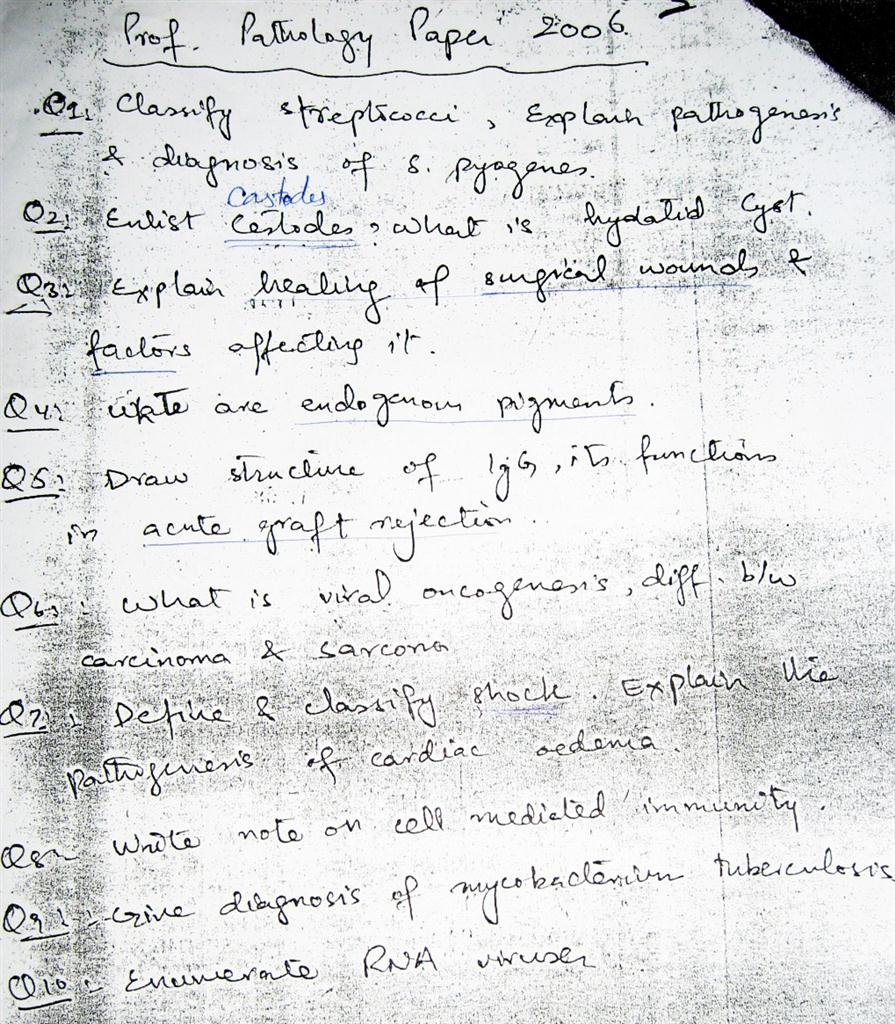 Prof. Pathology Paper 2006.
Q1: Classify streptococci, Explain pathogenesis
& diagnosis of S. pyogenes.
castodes
Q2: Enlist cestodes, what is hydatid cyst.
Q3: Explain healing of surgical wounds &
factors affecting it.
Q4: are endogenous pigments.
Q5: Draw structure of IgG, its functions
in acute graft rejection.
Q6: What is viral oncogenesis, diff. b/w
carcinoma & sarcoma
Q7: Define & classify shock. Explain the
pathogenesis of cardiac oedema.
Q8: Write note on cell mediated immunity.
Q9: Give diagnosis of mycobacterium tuberculosis
Q10: Enumerate RNA viruses.